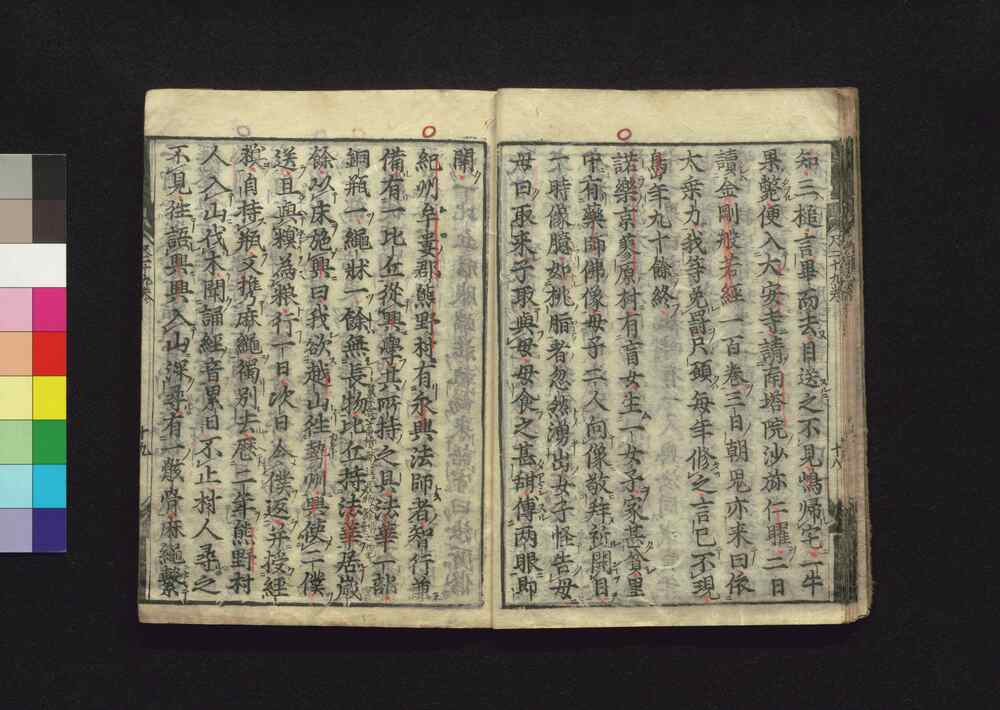 知三槌言畢而去目送之不見嶋帰宅一牛
果斃便入大安寺請南塔院沙弥仁曜二日
讀金剛般若經一百卷三日朝鬼亦来曰依
大乘力我等免罰只願每年修之言已不現
嶋年九十餘終
諾樂京蓼原村有盲女生一女子家甚貧里
中有藥師佛像母子二人向像敬拜祈開目
一時像臆如桃脂者忽然湧出女子怪告母
母曰取来子取與母母食之甚甜傅両眼即
開
紀州牟婁郡熊野村有永興法師者智行兼
備有一比丘從興學其所持之具法華一部
銅瓶一繩牀一餘無長物比丘持法華居歳
餘以床施興曰我欲越山往勢州興使二僕
送且與糗為粮行一日次日令僕返并授經
糗自持瓶又携麻繩獨別去歴二年熊野村
人入山伐木聞誦經音累日不止村人尋之
不見往語興興入山深尋有一骸脊麻繩繫
十八
十九